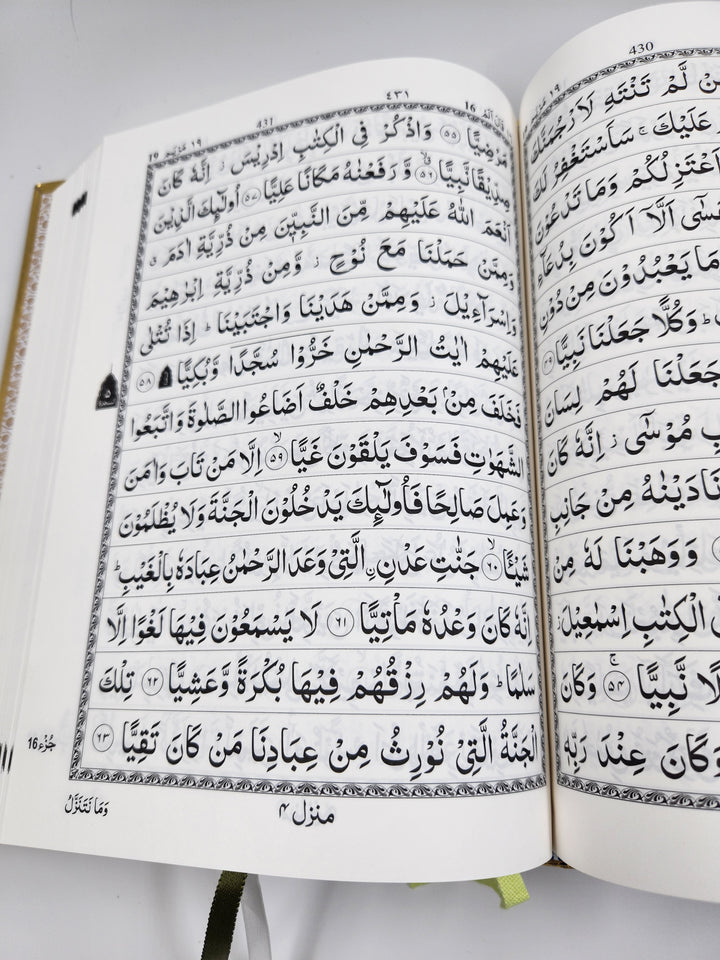 430
١٩
نْ لَّمْ تَنْتَهِ لَاَرْجُمَنَّكَ
عَلَيْكَ ۚ سَاَسْتَغْفِرُ لَكَ
اَعْتَزِلُكُمْ وَمَا تَدْعُوْنَ
سٰۤى اَلَّاۤ اَكُوْنَ بِدُعَآءِ
مَا يَعْبُدُوْنَ مِنْ دُوْنِ
ؕ وَكُلًّا جَعَلْنَا نَبِيًّا
جَعَلْنَا لَهُمْ لِسَانَ
بِ مُوْسٰۤى ؗ اِنَّهٗ كَانَ
نَادَيْنٰهُ مِنْ جَانِبِ
وَوَهَبْنَا لَهٗ مِنْ
الْكِتٰبِ اِسْمٰعِيْلَ ؗ
لًا نَّبِيًّا ۚ ٥٤ وَكَانَ
وَكَانَ عِنْدَ رَبِّهٖ
16 ٤٣١ 431 مَرْيَم ١٩
مَرْضِيًّا ٥٥ وَاذْكُرْ فِى الْكِتٰبِ اِدْرِيْسَ ؗ اِنَّهٗ كَانَ
صِدِّيْقًا نَّبِيًّا ۙ ٥٦ وَّ رَفَعْنٰهُ مَكَانًا عَلِيًّا ٥٧ اُولٰٓئِكَ الَّذِيْنَ
اَنْعَمَ اللّٰهُ عَلَيْهِمْ مِّنَ النَّبِيّٖنَ مِنْ ذُرِّيَّةِ اٰدَمَ ۗ
وَمِمَّنْ حَمَلْنَا مَعَ نُوْحٍ ؗ وَّمِنْ ذُرِّيَّةِ اِبْرٰهِيْمَ
وَاِسْرَآءِيْلَ ؗ وَمِمَّنْ هَدَيْنَا وَاجْتَبَيْنَا ؕ اِذَا تُتْلٰى
عَلَيْهِمْ اٰيٰتُ الرَّحْمٰنِ خَرُّوْا سُجَّدًا وَّبُكِيًّا ۩ ٥٨
فَخَلَفَ مِنْۢ بَعْدِهِمْ خَلْفٌ اَضَاعُوا الصَّلٰوةَ وَاتَّبَعُوا
الشَّهَوٰتِ فَسَوْفَ يَلْقَوْنَ غَيًّا ۙ ٥٩ اِلَّا مَنْ تَابَ وَاٰمَنَ
وَعَمِلَ صَالِحًا فَاُولٰٓئِكَ يَدْخُلُوْنَ الْجَنَّةَ وَلَا يُظْلَمُوْنَ
شَيْـًٔا ۙ ٦٠ جَنّٰتِ عَدْنِ ۣالَّتِىْ وَعَدَ الرَّحْمٰنُ عِبَادَهٗ بِالْغَيْبِ ؕ
اِنَّهٗ كَانَ وَعْدُهٗ مَاْتِيًّا ٦١ لَا يَسْمَعُوْنَ فِيْهَا لَغْوًا اِلَّا
سَلٰمًا ؕ وَلَهُمْ رِزْقُهُمْ فِيْهَا بُكْرَةً وَّعَشِيًّا ٦٢ تِلْكَ
الْجَنَّةُ الَّتِىْ نُوْرِثُ مِنْ عِبَادِنَا مَنْ كَانَ تَقِيًّا ٦٣
٥
جُزْء 16
منزل ٤
وَمَا نَتَنَزَّلُ